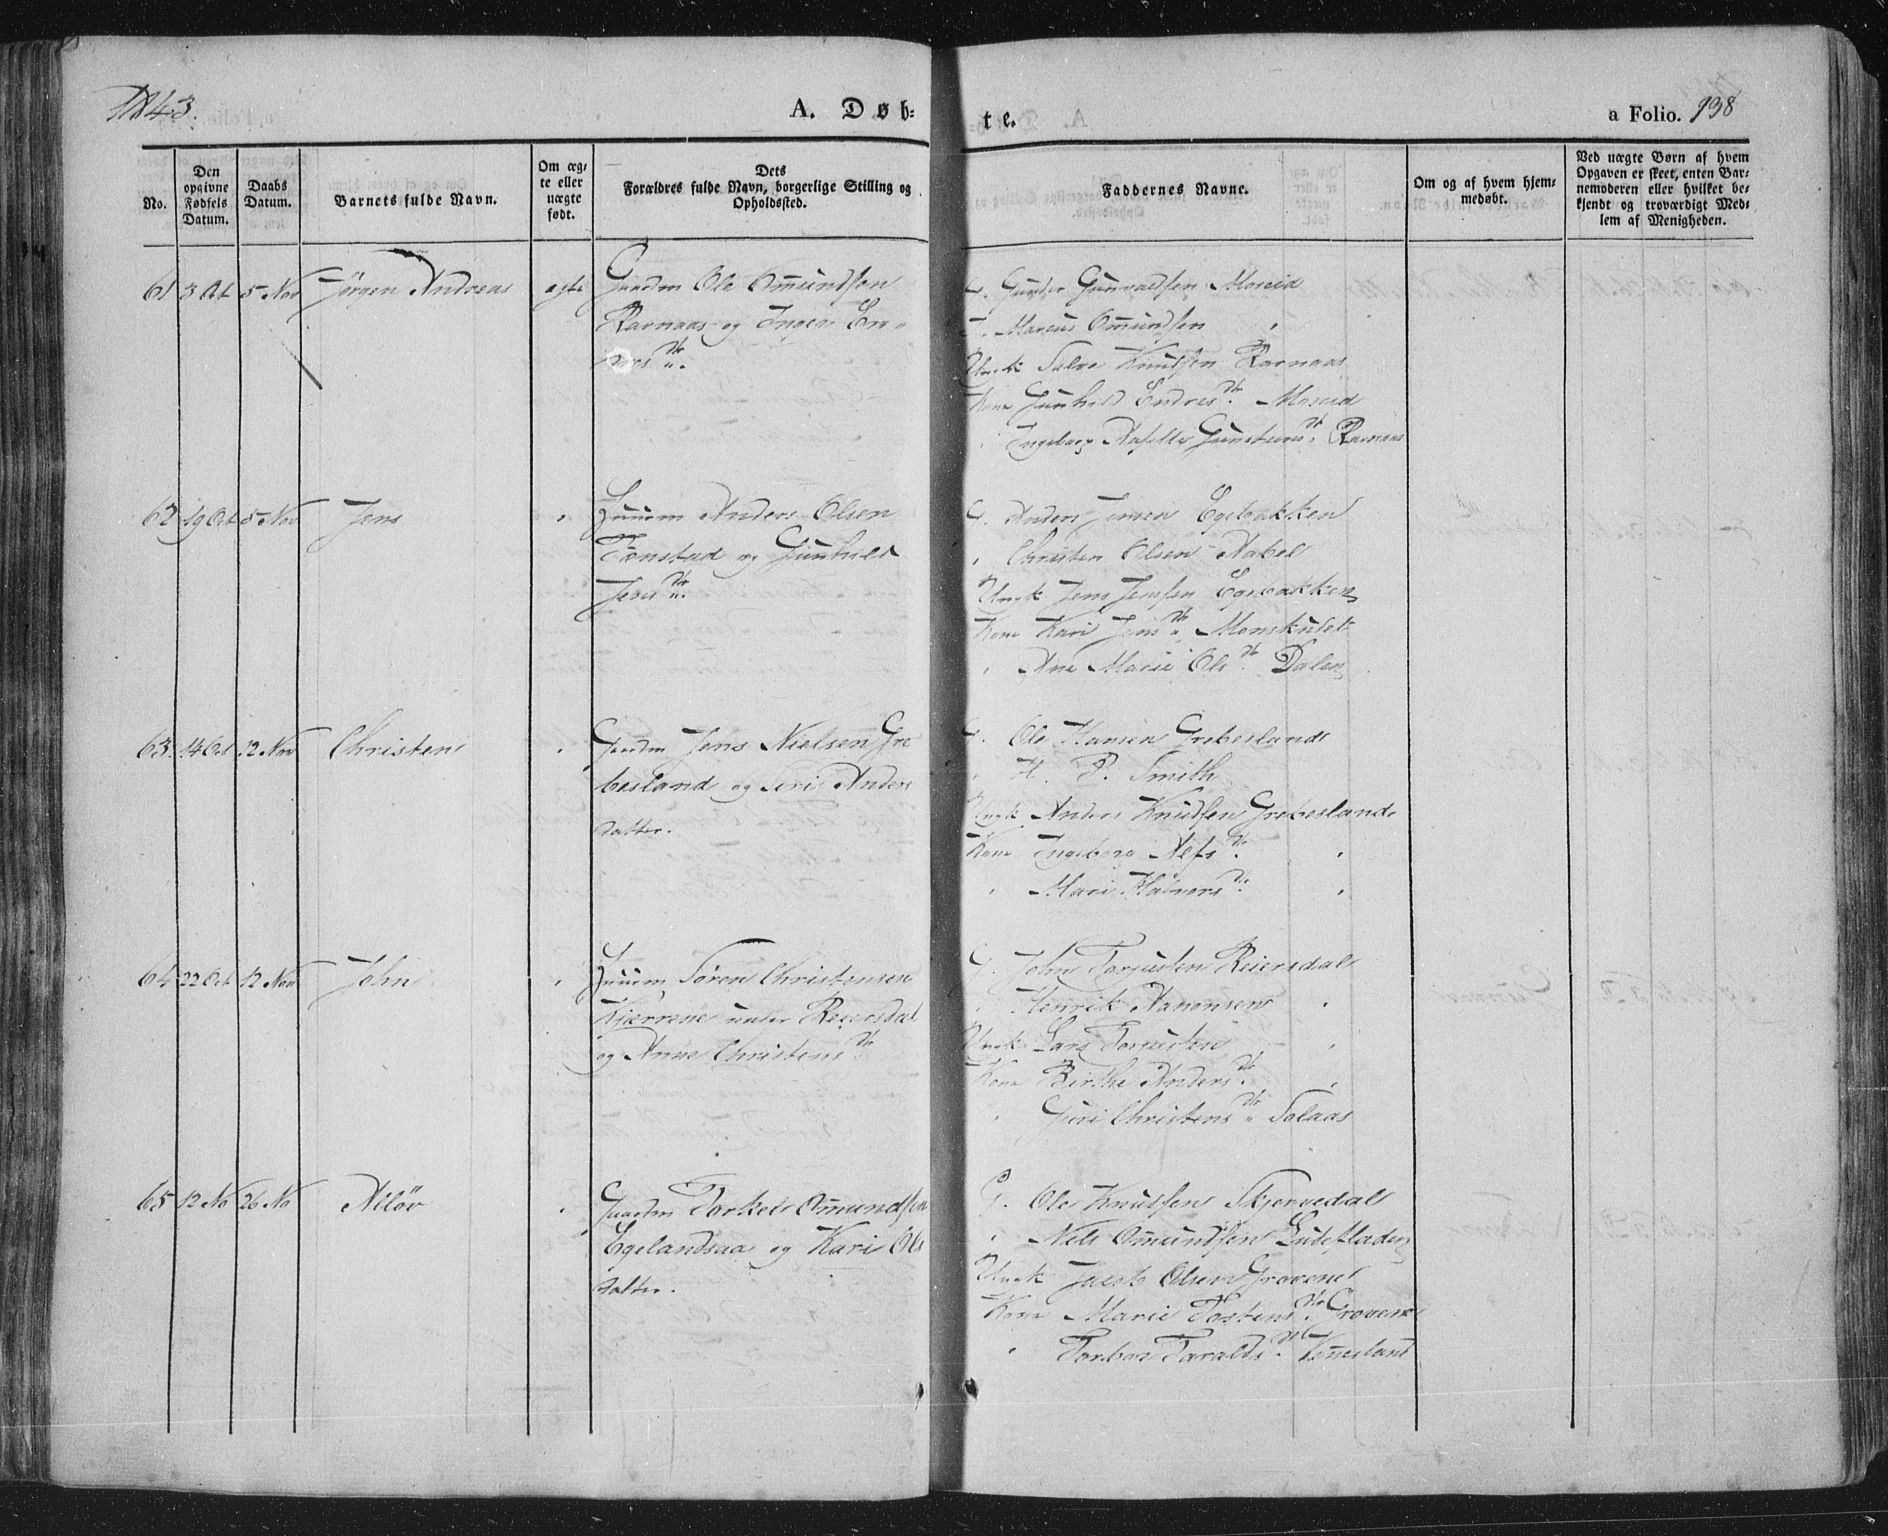 1843.
A. Døb-
te.
a Folio. 938
No.
Den opgivne Fødsels Datum.
Daabs Datum.
Barnets fulde Navn.
Om æg-
te eller
uægte
født.
Dets
Forældres fulde Navn, borgerlige Stilling og
Opholdssted.
Faddernes Navne.
Om og af hvem hjem-
medøbt.
Ved uægte Børn af hvem
Opgaven er skeet, enten Bar-
nemoderen eller hvilket be-
kjendt og troværdigt Med-
lem af Menigheden.
61 3 Oct 5 Nov Jørgen Andreas ægte Gaardm Ole Omundsen
Ravnaas og Inger
G. Gunder Gunvaldsen Moseid
Marcus Omundsen
Ungk Salve Knudsen Ravnaas
Kone Gunhild Endresdtr. Moseid
Ingeborg Ravnaas
62 19 Oct 5 Nov Jens Huusm Anders Olsen
Tonstad og Gunhild
Jensdtr.
G. Anders Jensen Egebakken
Christen Olsen Aabel
Ungk Jens Jensen Egebakken
Kone Kari Jensdtr Monskulet
Ane Marie Olsdtr. Dalen
63. 14 Oct 12 Nov Christen Gaardm Jens Nielsen Gre
besland og Siri Anders
datter.
G. Ole Hansen Grebesland
H. P. Smith
Ungk Anders Knudsen Grebesland
Kone Ingeborg Alfsdtr.
Mari Halvorsdtr.
64 22 Oct 12 Nov John Huusm Søren Christensen
Kjærrene under Reiersdal
og Anne Christensdtr.
G. John Torjusten Reiersdal
Henrik Aanonsen
Ungk Lars Torjusten
Kone Birthe Andersdtr.
Guri Christensdtr. Solaas
65 12 No 26 No Aslöv Gaardm Torkel Omundsen
Egelandsaa og Kari Ols
datter.
G. Ole Knudsen Skjervedal
Nils Omundsen Lindefladen
Ungk Jacob Olsen Grovene
Kone Marie Tostensdtr. Grovene
Torbor Taraldsdtr. Venesland